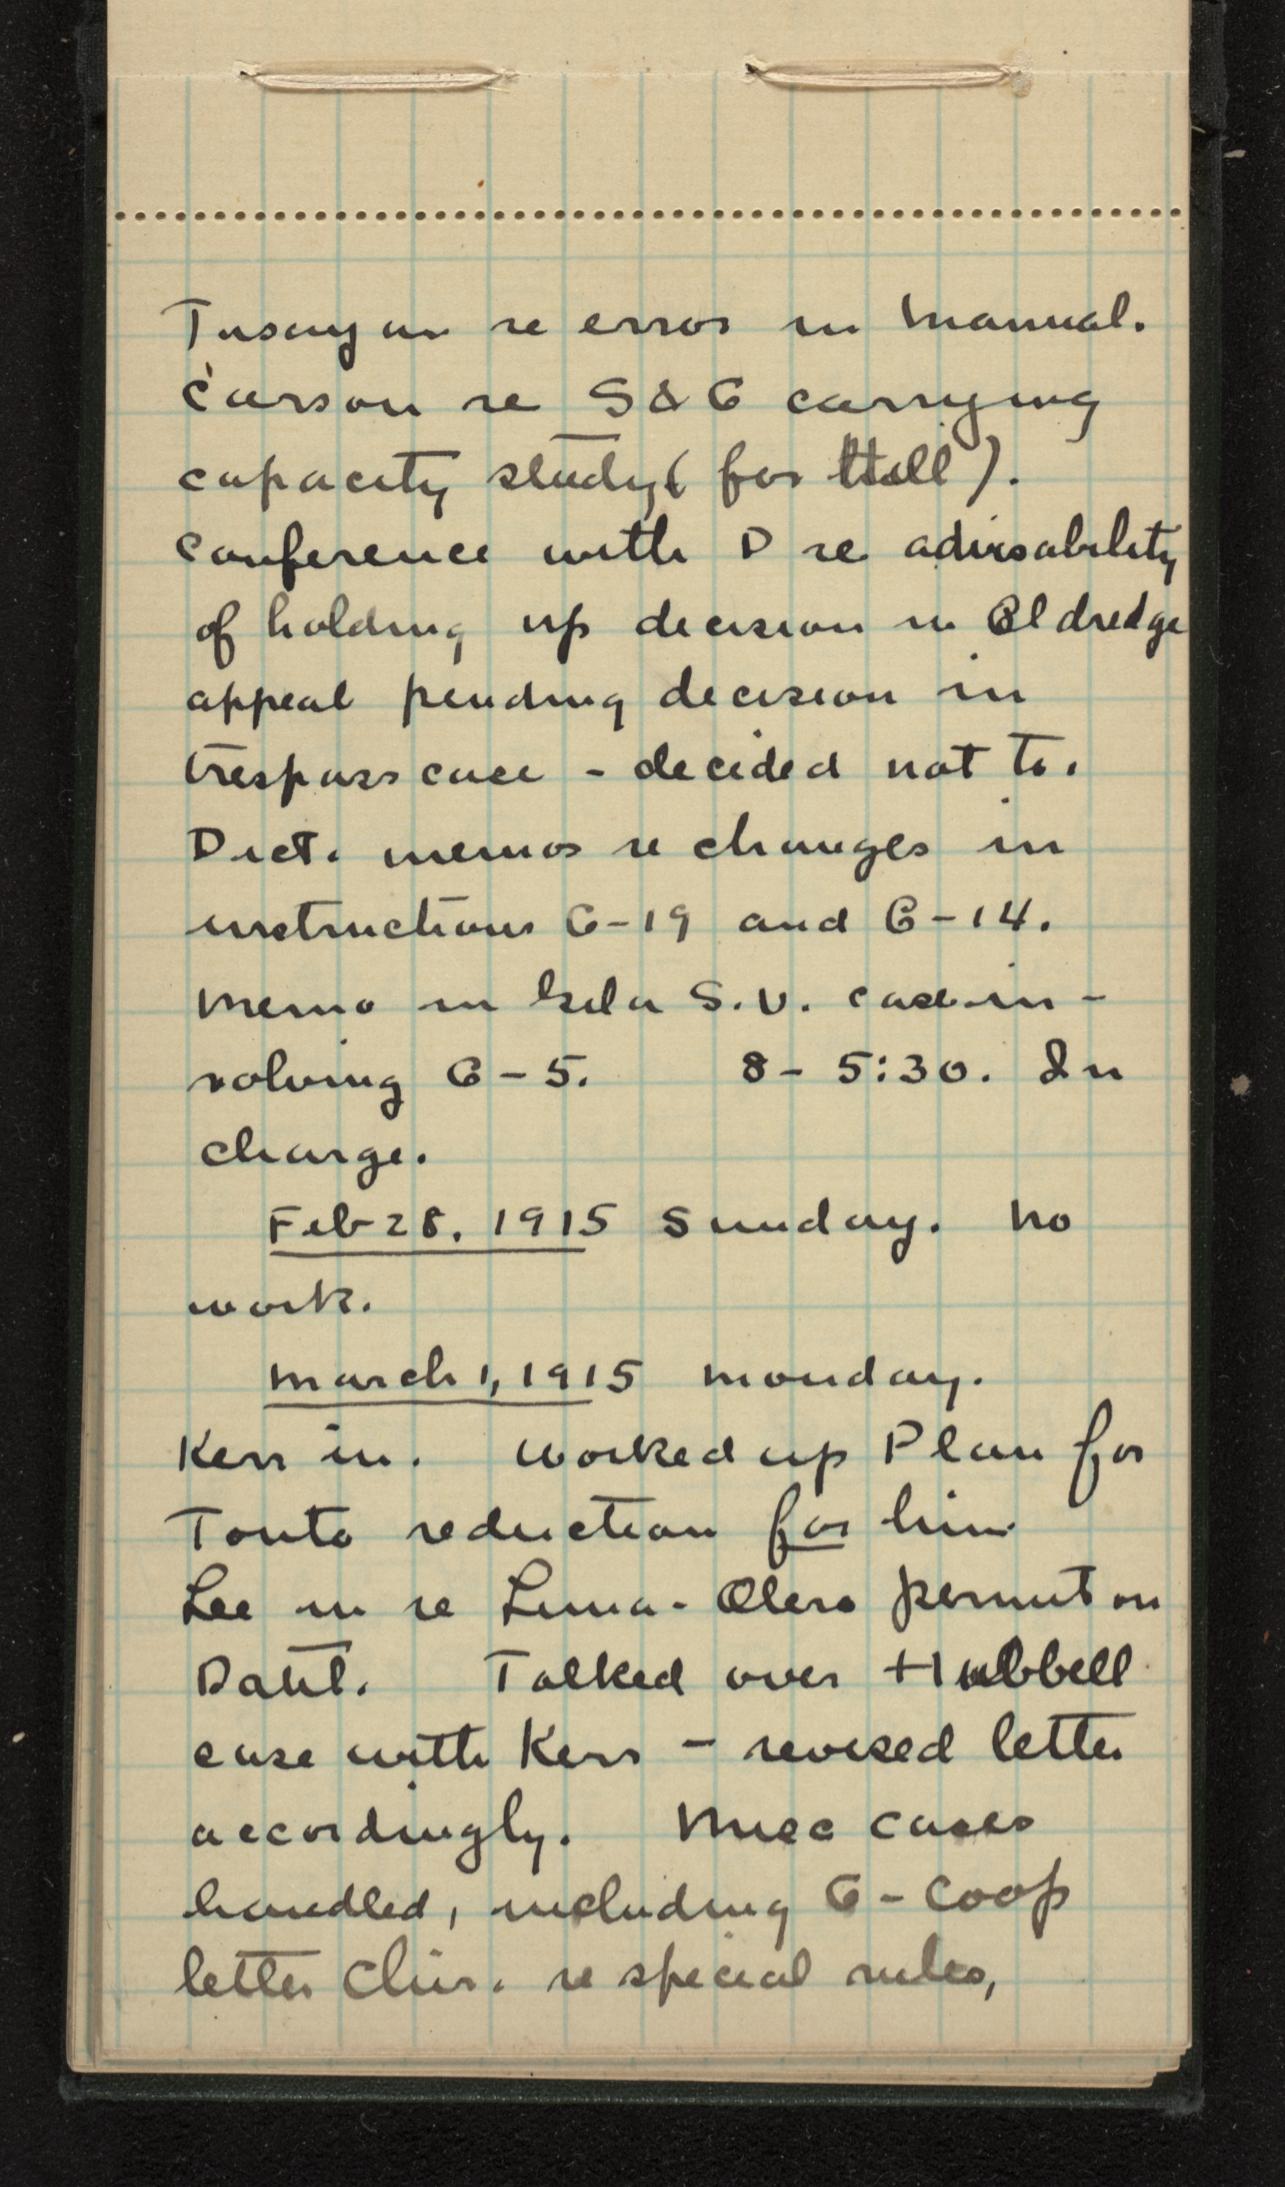 Tusayan re error in Manual.
Carson re S&G carrying
capacity study (for Hill).
Conference with D re advisability
of holding up decision in Eldredge
appeal pending decision in
trespass case - decided not to.
Dict. memos re changes in
instructions G-19 and G-14.
Memo in Gila S.U. case in-
volving G-5. 8- 5:30. In
charge.
Feb 28, 1915 Sunday. No
work.
March 1, 1915 Monday.
Kerr in. Worked up Plan for
Tonto reduction for him
Lee in re Luna-Otero permit on
Datil. Talked over Hubbell
case with Kerr - revised letter
accordingly. Misc cases
handled, including G-Coop
letter Chir. re special rules,